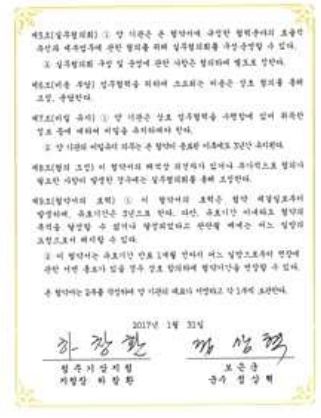 제5조(실무협의회) ① 양 기관은 본 협약서에 규정한 협력분야의 효율적
추진과 세부업무에 관한 협의를 위해 실무협의회를 구성·운영할 수 있다.
② 실무협의회 구성 및 운영에 관한 사항은 협의하여 별도로 정한다.
제6조(비용 부담) 업무협력을 위하여 소요되는 비용은 상호 협의를 통해
조정, 운영한다.
제7조(비밀 유지) ① 양 기관은 상호 업무협력을 수행함에 있어 취득한
정보 등에 대하여 비밀을 유지하여야 한다.
② 양 기관의 비밀유지 의무는 본 협약이 종료된 이후에도 3년간 유지된다.
제8조(협의 조정) 이 협약서의 해석상 의견차가 있거나 추가적으로 협의가
필요한 사항이 발생한 경우에는 실무협의회를 통해 조정한다.
제9조(협약서의 효력) ① 이 협약서의 효력은 협약 체결일로부터
발생하며, 유효기간은 3년으로 한다. 다만, 유효기간 이내라도 협약의
목적을 달성할 수 없거나 달성되었다고 판단될 때에는 어느 일방의
요청으로써 해지할 수 있다.
② 이 협약서는 유효기간 만료 1개월 전까지 어느 일방으로부터 연장에
관한 서면 통보가 있을 경우 상호 합의하에 협약기간을 연장할 수 있다.
본 협약서는 2부를 작성하여 양 기관의 대표가 서명하고 각 1부씩 보관한다.
2017년 1월 31일
하창환 정상혁
청주기상지청 보은군
지청장 하창환 군수 정상혁